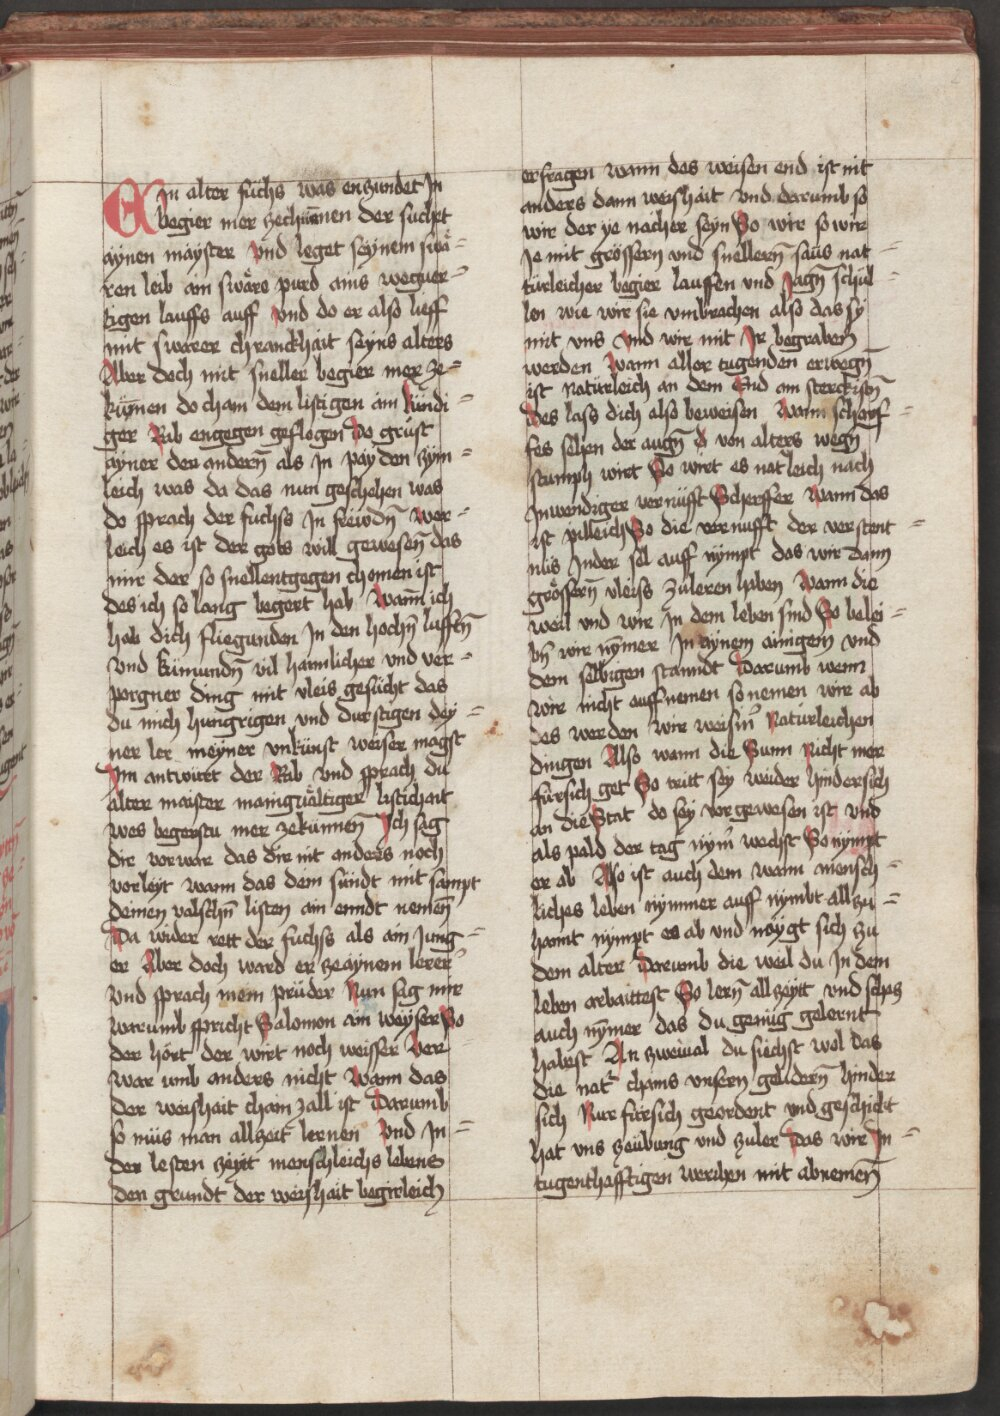 Ein alter fuchs was enzundet In
begier mer zechunnen der suchet
aynen mayster Vnd leget seynem swä=
ren leib ain swäre purd ains wegner=
tigen lauffs auff Vnd do er also lieff
mit swärer chranckhait seyns alters
Aber doch mit sneller begier mer ze=
künnen do cham dem listigen ain kündi
ger Rab engegen geflogen Do grüst
ayner den andern als In payden zym=
leich was da das nun geschehen was
do sprach der fuchss In frewdn Wer=
leich es ist der gots will gewesen das
mir der so snell entgegen chomen ist
des ich so lang begert hab Wann ich
hab dich fliegunden In den hochn lufften
vnd künnundn vil haimlicher vnd ver=
porgner ding mit vleis gesücht das
du mich hungrigen vnd durstigen dey=
ner ler meyner vnkünst weiser magst
Im antwürt der Rab vnd sprach du
alter maister manigualtiger listichait
wes begerstu mer zekünnen Ich sag
dir vorwar das dir nit anders noch
vorleyt wann das dein sündt mit sampt
deinen valschn listen ain enndt nemen
Da wider rett der fuchss als ain Jung=
er Aber doch ward er ze aynem lerer
vnd sprach mein prüder Nun sag mir
warumb spricht Salomon ain weyser So
der hört der wirt noch weisser Ver
war umb anders nicht Wann das
der weishait chain zall ist Darumb
so müs man allzeit lernen Vnd In=
der lesten zeyt menschleichs lebens
den grundt der weishait begirleich
erfragen wann des weisen end ist nit
anders dann weishait vnd darumb so
wir der ye nächer seyn So wir so wir
Je mit grössern vnd snellern saüs nat=
türleicher begier lauffen vnd Jagn schül=
len wie wir sie vmbrachen also das sy
mit vns Vnd wir mit Ir begraben
werden Wann aller tugenden erwegn
ist natürleich an dem End am sterckistn
Des lass dich also beweisen Wann scharf=
fes sehen der augn d von alters wegn
stumph wirt So wirt es natleich nach
Inwendiger vernüfft Scherffer Wann das
ist pilleich So die vernufft der verstent=
nus Inder sel auff nympt das wir dann
grössern vleiss zuleren haben Wann die
weil vnd wir In dem leben sind So belei=
bn wir nymer In aynem ainigem vnd
dem selbigen stanndt Darumb wenn
wir nicht auff nemen so nemen wir ab
des werden wir weisin Natürleichen
dingen Also wann die Sunn Nicht mer
fürsich get So tritt sey wider hindersich
an die Stat do sey vor gewesen ist vnd
als pald der tag nym wechst So nympt
er ab Also ist auch dem wann mensch=
liches leben nymmer auff nymbt allzu=
hannt nympt es ab vnd naygt sich zu
dem alter Darumb die weil du In dem
leben arbaittest So lern allzeytt vnd schag
auch nymer das du genüg gelernt
habest An zweiual du siechst wol das
die nat chains vnsern gelidern hinder
sich Nur fürsich geordent vnd geschickt
hat vns zeübung vnd zuler Das wir In=
tugenthafftigen werchen mit abnemen